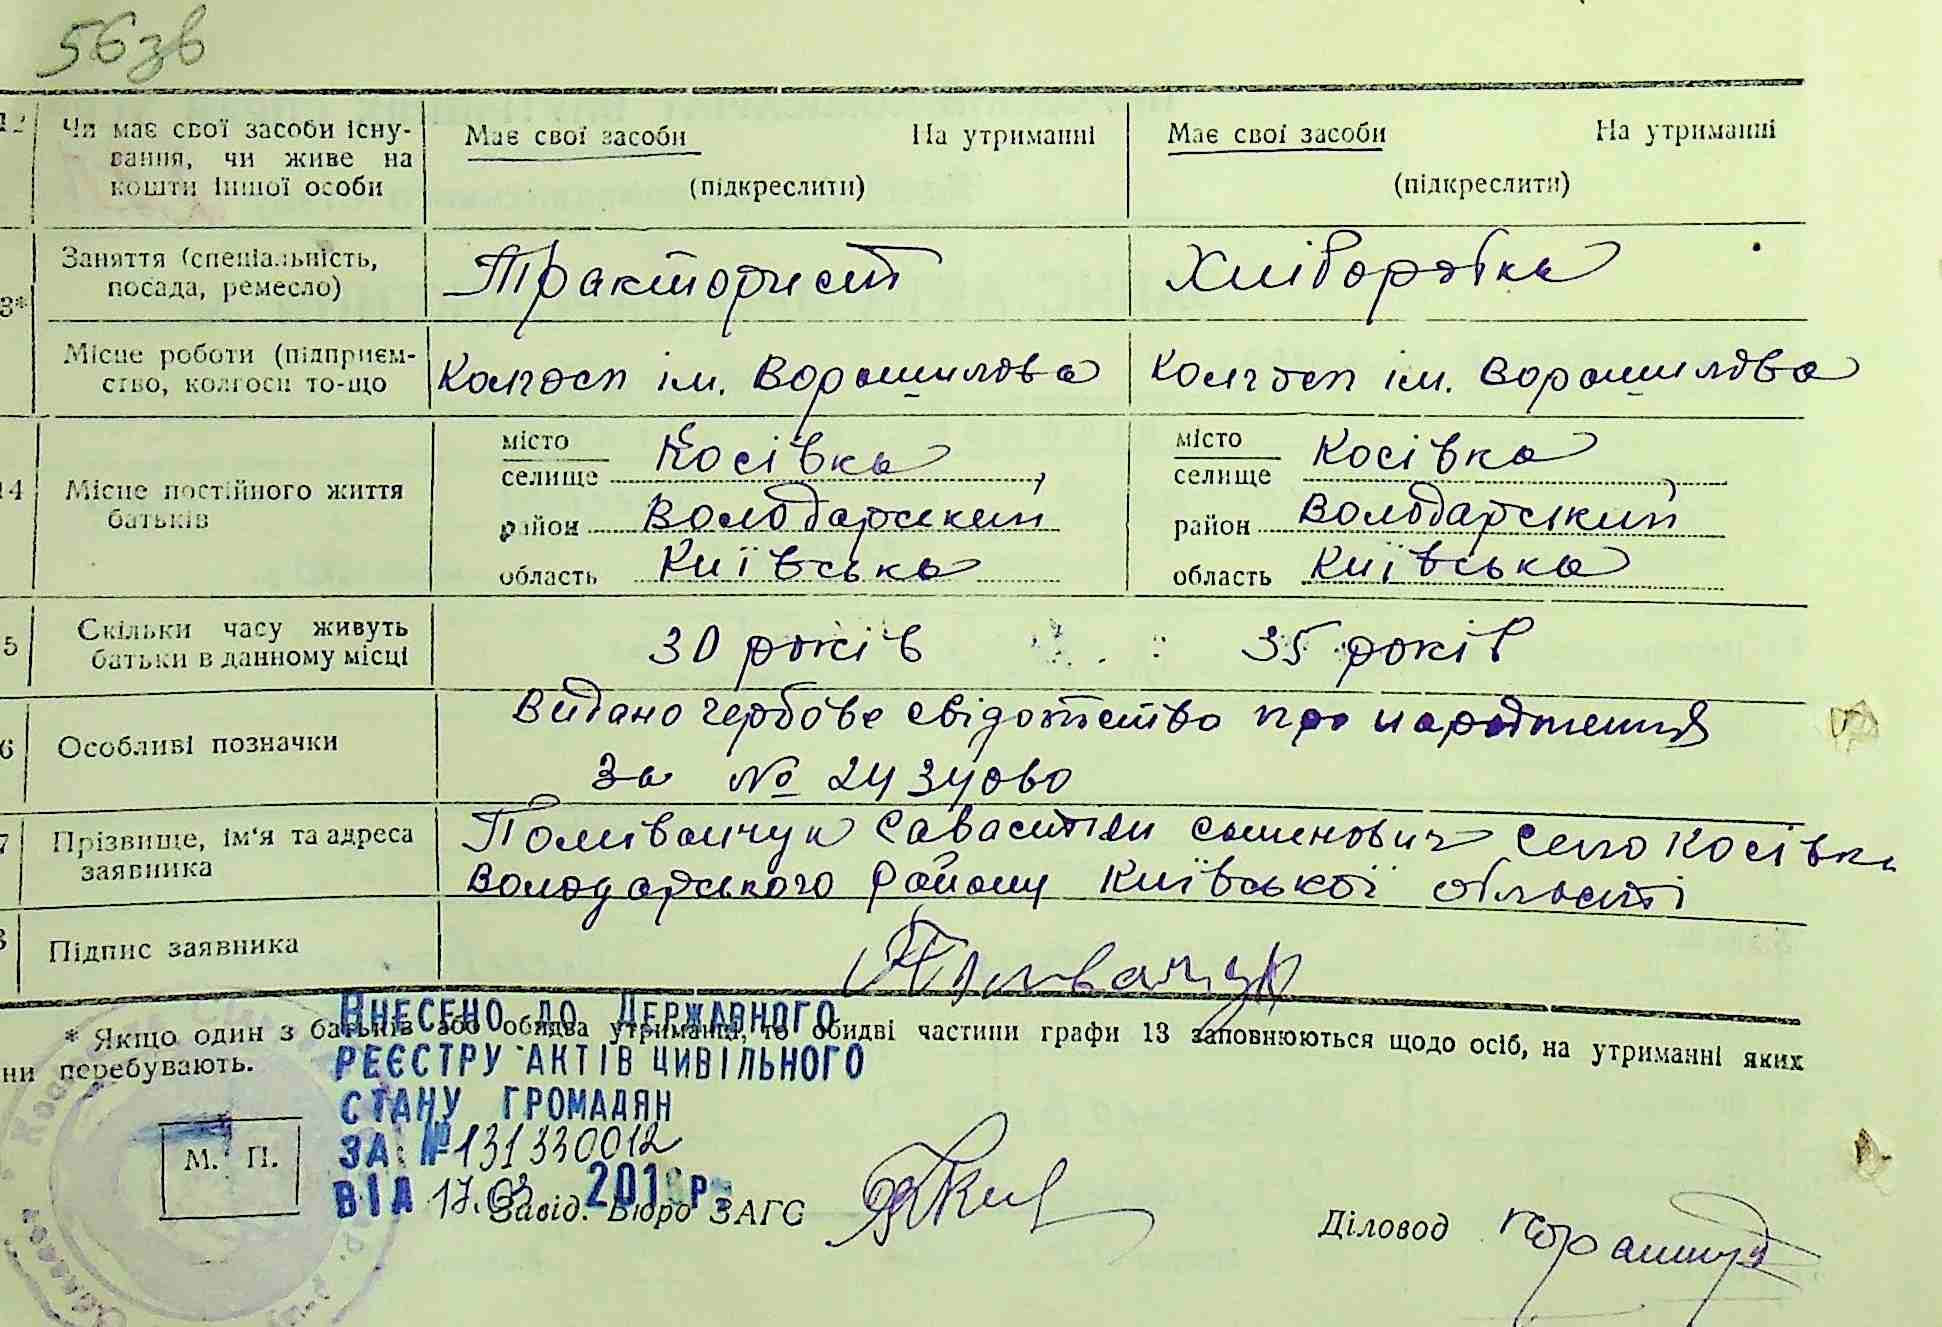 56зв
12 Чи має свої засоби існу- Має свої засоби На утриманні Має свої засоби На утриманні
вання, чи живе на
кошти іншої особи (підкреслити) (підкреслити)
Заняття (спеціальність, Тракторист Хліборобка
посада, ремесло)
3*
Місце роботи (підприєм- Колгосп ім. Ворошилова Колгосп ім. Ворошилова
ство, колгосп то-що
місто Косівка місто Косівка
селище селище
14 Місце постійного життя
батьків район Володарський район Володарський
область Київська область Київська
5 Скільки часу живуть 30 років 35 років
батьки в данному місці
Видано гербове свідотство про народження
6 Особливі позначки
За №
7 Прізвище, ім'я та адреса Поліванчук Савастян Семенович село Косівка
заявника Володарського району Київської області
Підпис заявника Поліванчук
Внесено до Державного
* Якщо один з батьків або обидва утриманці, то обидві частини графи 13 заповнюються щодо осіб, на утриманні яких
ни перебувають.
реєстру актів цивільного
стану громадян
М. П. за № 131330012
від 17. 201 р.
Завід. Бюро ЗАГС Діловод